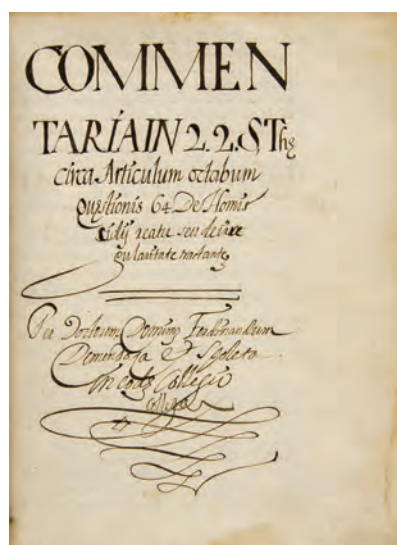 COMMEN
TARIA IN 2. 2. S Thȩ
circa Articulum octabum
Quȩstionis 64 De Homi
cidij reatu seu de irre
gularitate
Per Doctorem Ferdinandum
Demendoça Et
In Collegii
collega